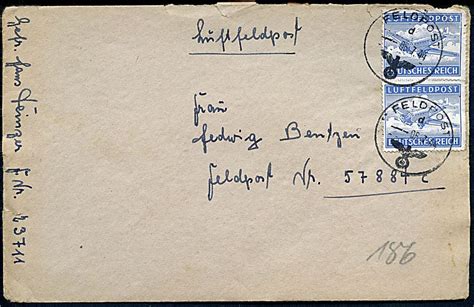 Luftfeldpost
Frau
Hedwig Bentzen
Feldpost Nr. 57884 C
186
FELDPOST
d
LUFTFELDPOST
DEUTSCHES REICH
FELDPOST
d
DEUTSCHES REICH
Gefr. Hans F Nr. 23711